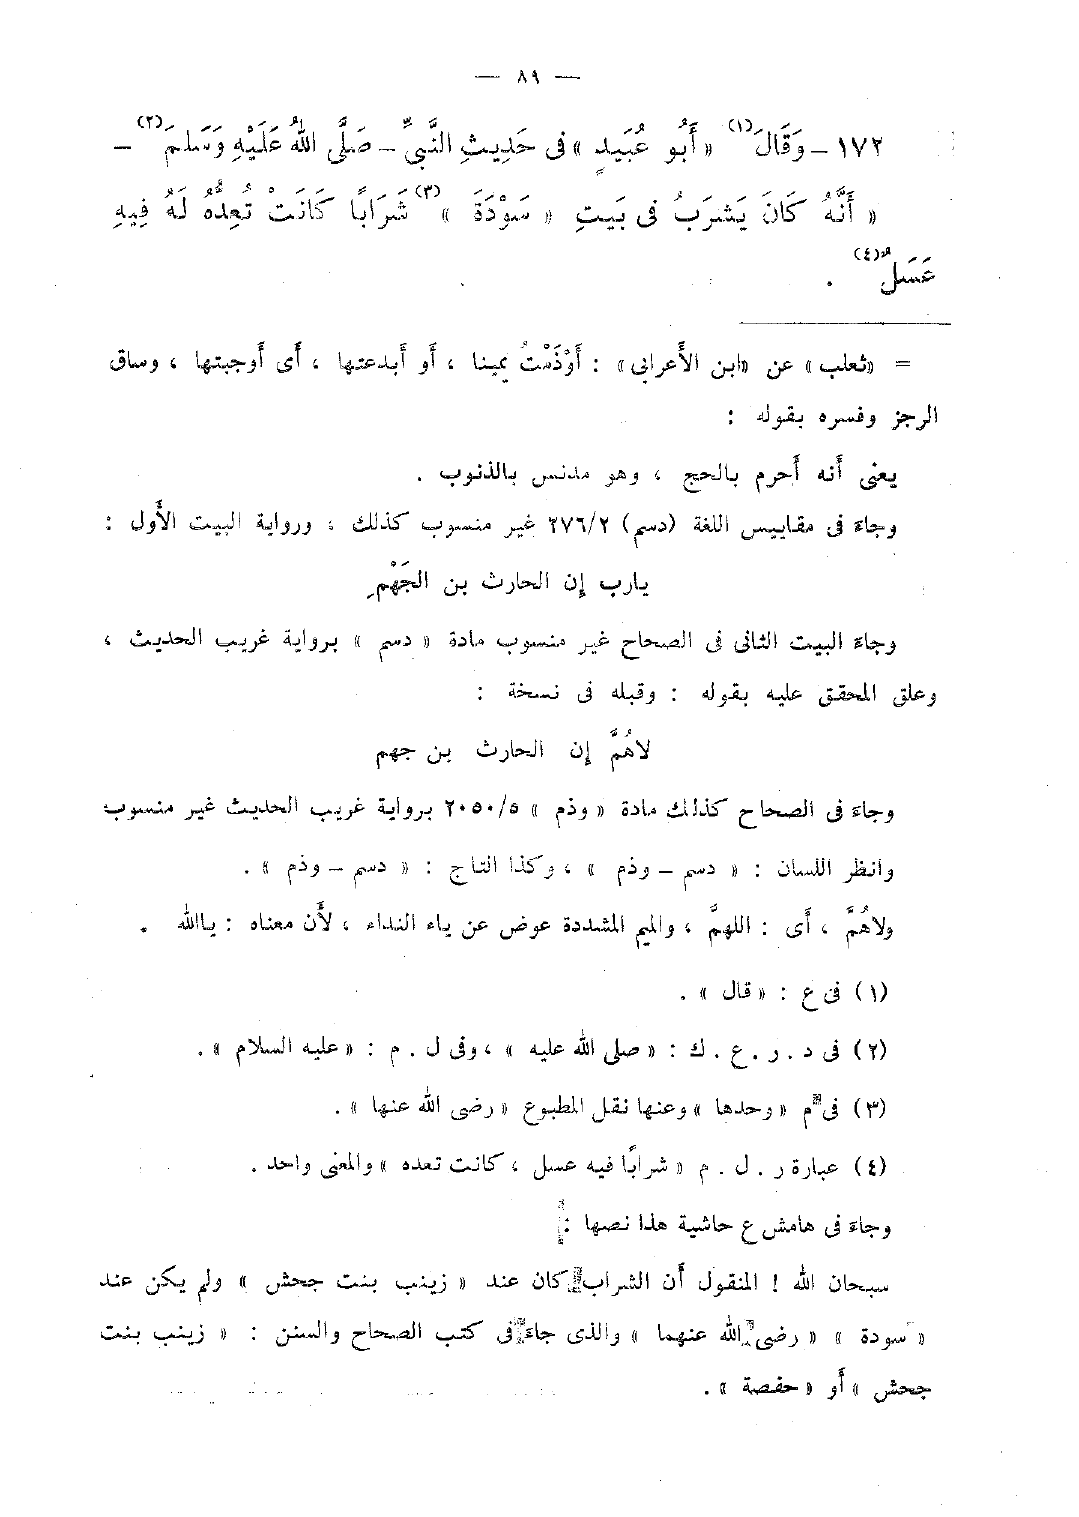 — ٨٩ —
١٧٢ – وَقَالَ(١) « أَبُو عُبَيدٍ » فى حَدِيثِ النَّبىِّ – صَلَّى اللهُ عَلَيْهِ وَسَلمَ(٢) –
« أَنَّهُ كَانَ يَشرَبُ فى بَيتِ « سَوْدَةَ »(٣) شَرَابًا كَانَتْ تُعِدُّهُ لَهُ فِيهِ
عَسَلٌ(٤) .
= «ثعلب» عن «ابن الأَعرابى» : أَوْذَمْتُ يمينا ، أَو أَبدعتها ، أَى أَوجبتها ، وساق
الرجز وفسره بقوله :
يعنى أَنه أَحرم بالحج ، وهو مدنس بالذنوب .
وجاءَ فى مقاييس اللغة (دسم) ٢٧٦/٢ غير منسوب كذلك ، ورواية البيت الأَول :
يارب إِن الحارث بن الجَهْمِ
وجاءَ البيت الثانى فى الصحاح غير منسوب مادة « دسم » برواية غريب الحديث ،
وعلق المحقق عليه بقوله : وقبله فى نسخة :
لاهُمَّ إِن الحارث بن جهم
وجاءَ فى الصحاح كذلك مادة « وذم » ٢٠٥٠/٥ برواية غريب الحديث غير منسوب
وانظر اللسان : « دسم – وذم » ، وكذا التاج : « دسم – وذم » .
ولاهُمَّ ، أَى : اللهمَّ ، والميم المشددة عوض عن ياء النداء ، لأَن معناه : ياالله .
(١) فى ع : « قال » .
(٢) فى د . ر . ع . ك : « صلى الله عليه » ، وفى ل . م : « عليه السلام » .
(٣) فى م « وحدها » وعنها نقل المطبوع « رضى الله عنها » .
(٤) عبارة ر . ل . م « شرابًا فيه عسل ، كانت تعده » والمعنى واحد .
وجاءَ فى هامش ع حاشية هذا نصها :
سبحان الله ! المنقول أَن الشراب كان عند « زينب بنت جحش » ولم يكن عند
« سودة » « رضى الله عنهما » والذى جاءَ فى كتب الصحاح والسنن : « زينب بنت
جحش » أَو « حفصة » .